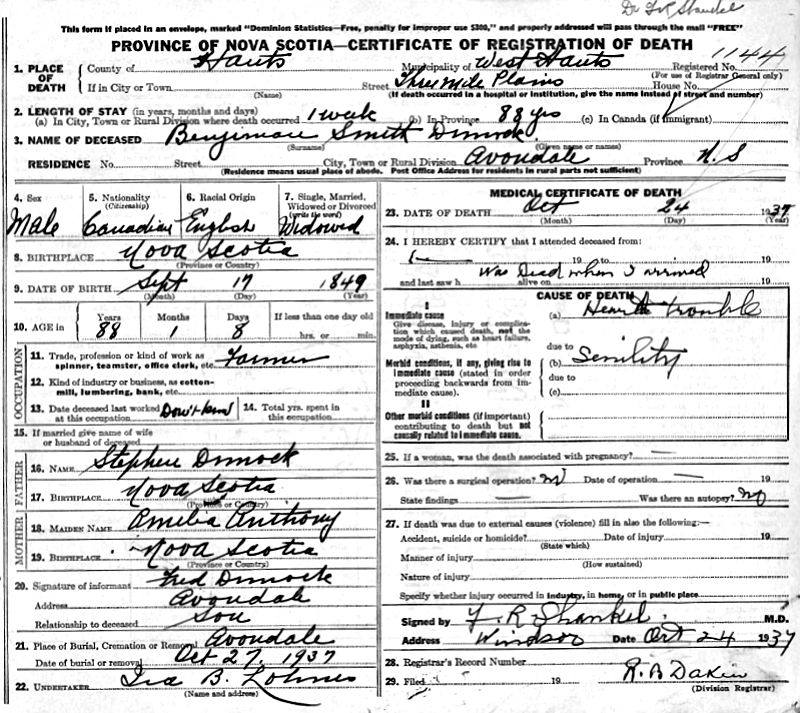 Dr F R Shankel
This form if placed in an envelope, marked "Dominion Statistics—Free, penalty for improper use $300," and properly addressed will pass through the mail "FREE"
PROVINCE OF NOVA SCOTIA—CERTIFICATE OF REGISTRATION OF DEATH
1144
1. PLACE OF DEATH
County of Hants Municipality of West Hants Registered No.
(For use of Registrar General only)
If in City or Town Street Three Mile Plains House No.
(Name) (If death occurred in a hospital or institution, give the name instead of street and number)
2. LENGTH OF STAY (in years, months and days)
(a) In City, Town or Rural Division where death occurred 1 week (b) In Province 88 yrs (c) In Canada (if immigrant)
3. NAME OF DECEASED Benjiman Smith Dimock
(Surname) (Given name or names)
RESIDENCE No. Street City, Town or Rural Division Avondale Province N.S
(Residence means usual place of abode. Post Office Address for residents in rural parts not sufficient)
4. Sex
Male
5. Nationality
(Citizenship)
Canadian
6. Racial Origin
English
7. Single, Married, Widowed or Divorced
(write the word)
Widowed
8. BIRTHPLACE Nova Scotia
(Province or Country)
9. DATE OF BIRTH Sept 17 1849
(Month) (Day) (Year)
10. AGE in
Years Months Days If less than one day old
88 1 8 hrs. or min.
OCCUPATION
11. Trade, profession or kind of work as spinner, teamster, office clerk, etc. Farmer
12. Kind of industry or business, as cotton-mill, lumbering, bank, etc.
13. Date deceased last worked at this occupation Don't know
14. Total yrs. spent in this occupation
15. If married give name of wife or husband of deceased
FATHER
16. NAME Stephen Dimock
17. BIRTHPLACE Nova Scotia
(Province or Country)
MOTHER
18. MAIDEN NAME Amelia Anthony
19. BIRTHPLACE Nova Scotia
(Province or Country)
20. Signature of informant Fred Dimock
Address Avondale
Relationship to deceased Son
21. Place of Burial, Cremation or Removal Avondale
Date of burial or removal Oct 27, 1937
22. UNDERTAKER Ira B. Lohnes
(Name and address)
MEDICAL CERTIFICATE OF DEATH
23. DATE OF DEATH Oct 24 1937
(Month) (Day)
24. I HEREBY CERTIFY that I attended deceased from:
19 to 19
was dead when I arrived
and last saw h alive on 19
CAUSE OF DEATH
I
Immediate cause
Give disease, injury or complication which caused death, not the mode of dying, such as heart failure, asphyxia, asthenia, etc
(a) Heart trouble
due to
Morbid conditions, if any, giving rise to immediate cause (stated in order proceeding backwards from immediate cause).
(b) Senility
due to
(c)
II
Other morbid conditions (if important) contributing to death but not causally related to immediate cause.
25. If a woman, was the death associated with pregnancy? —
26. Was there a surgical operation? No Date of operation — 19
State findings — Was there an autopsy? No
27. If death was due to external causes (violence) fill in also the following:—
Accident, suicide or homicide? Date of injury 19
(State which)
Manner of injury
(How sustained)
Nature of injury
Specify whether injury occurred in industry, in home, or in public place
Signed by F. R. Shankel. M.D.
Address Windsor Date Oct 24 1937
28. Registrar's Record Number
29. Filed 19
R. B Dakin
(Division Registrar)